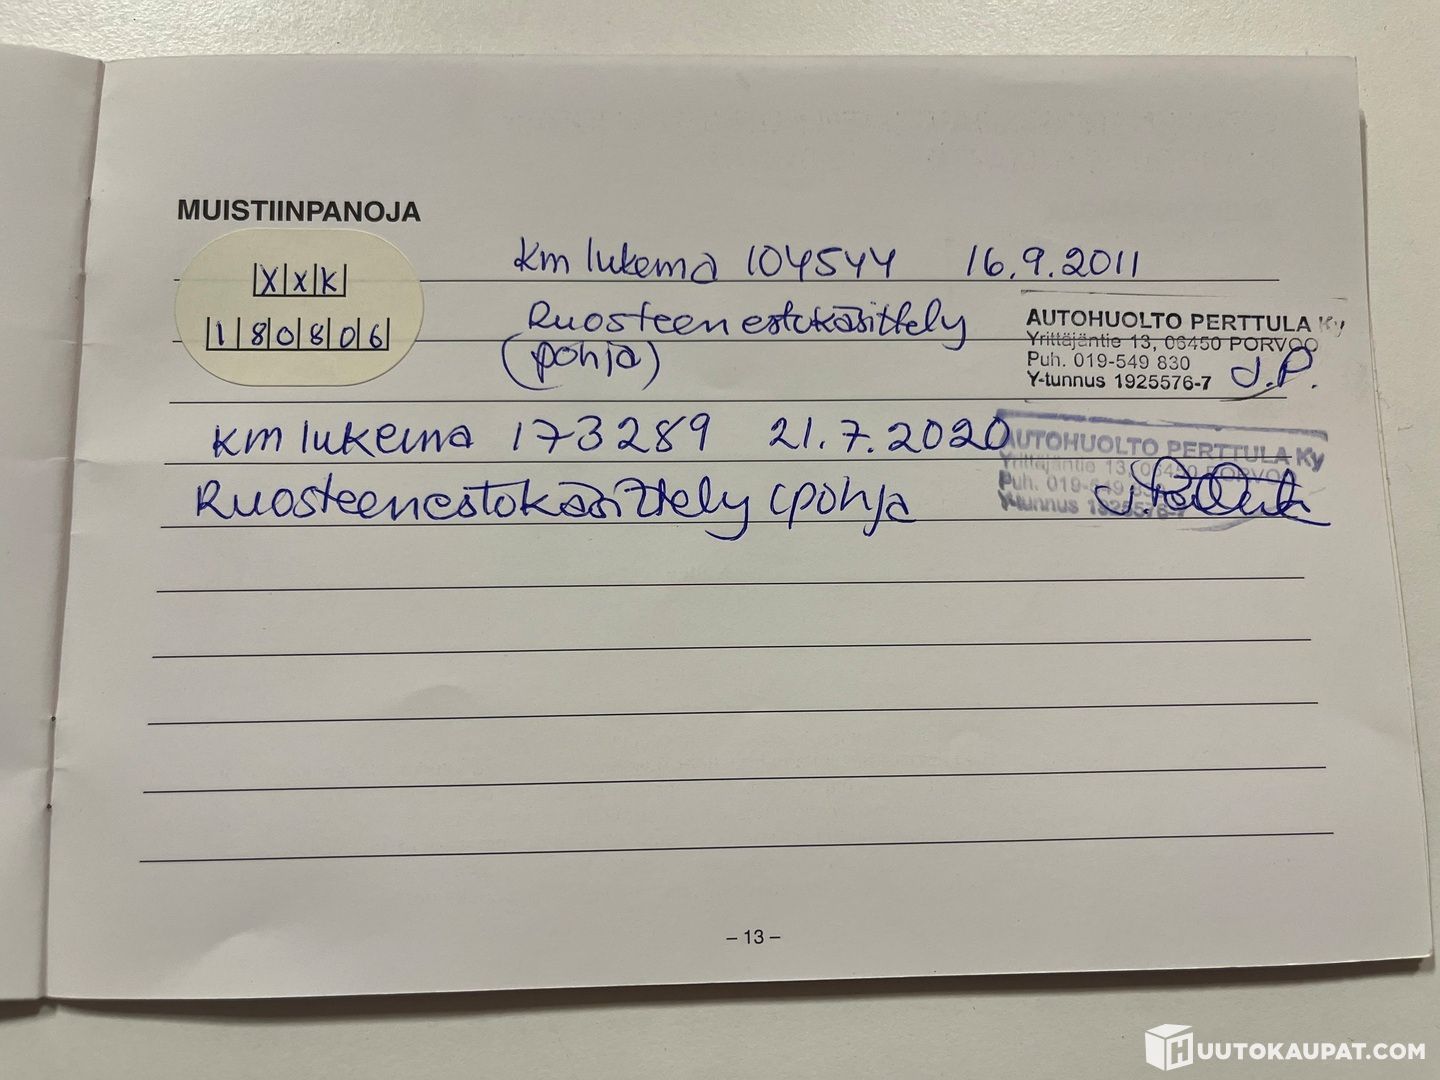 MUISTIINPANOJA
XXK
180806
Km lukema 104544 16.9.2011
Ruosteenestokäsittely
(pohja)
AUTOHUOLTO PERTTULA Ky
Yrittäjäntie 13, 06450 PORVOO
Puh. 019-549 830
Y-tunnus 1925576-7
J.P.
km lukema 173289 21.7.2020
Ruosteenestokäsittely (pohja
AUTOHUOLTO PERTTULA Ky
Yrittäjäntie 13, 06450 PORVOO
Puh. 019-549 830
Y-tunnus 1925576-7
– 13 –
HUUTOKAUPAT.COM